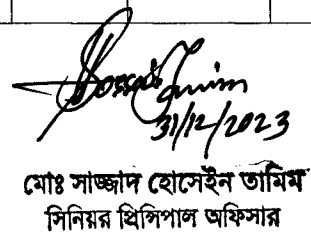 31/12/2023
মোঃ সাজ্জাদ হোসেইন তামিম
সিনিয়র প্রিন্সিপাল অফিসার